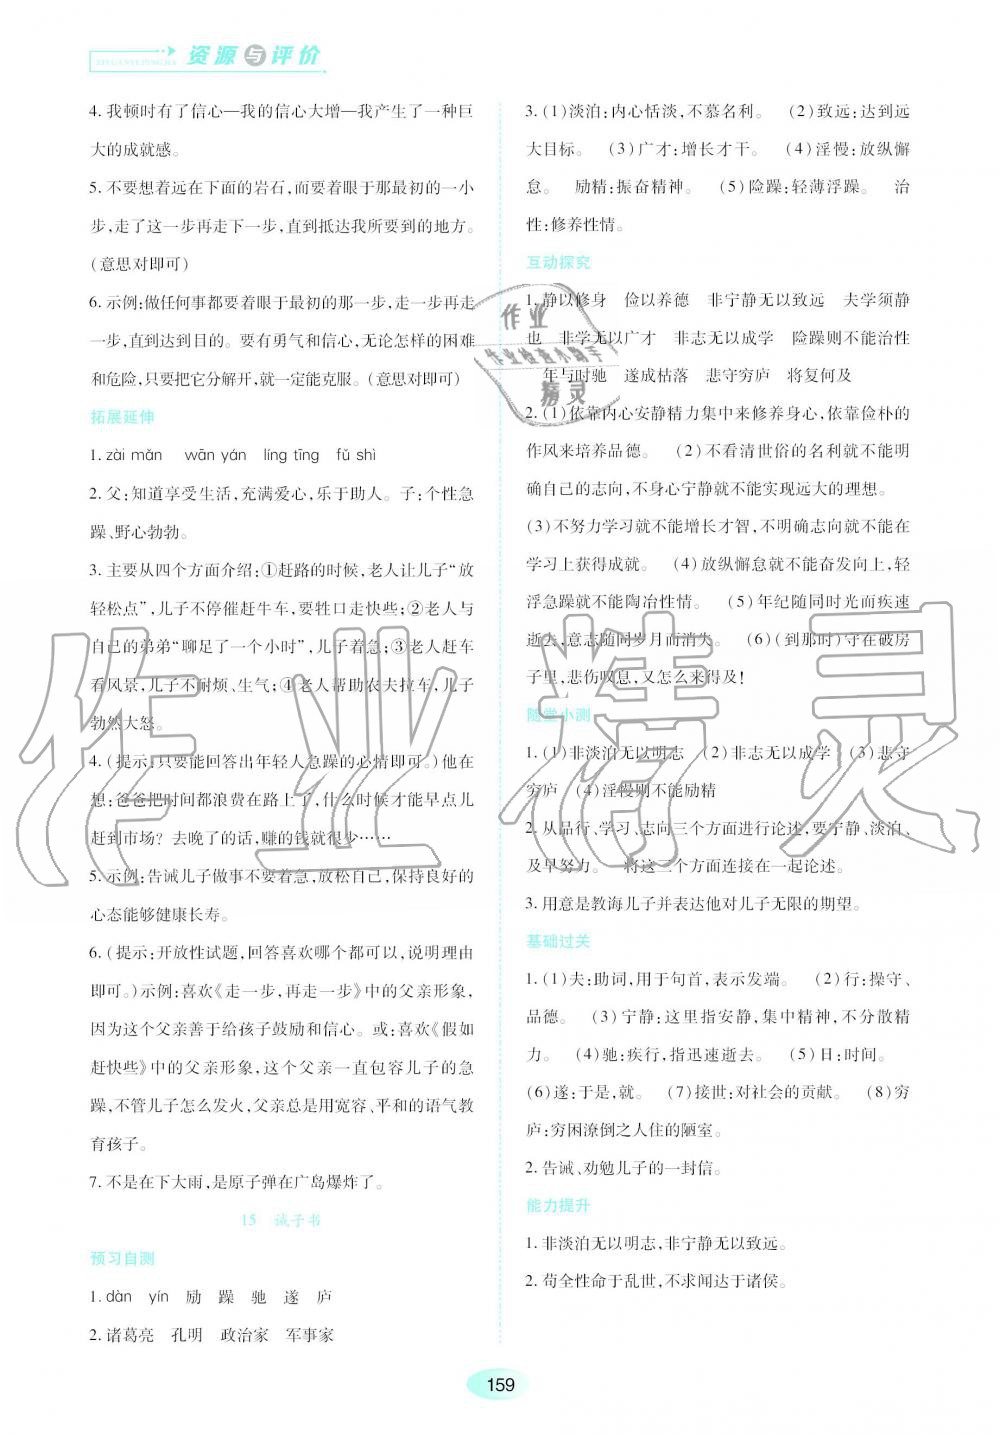 ZIYUANYUPINGJIA
资源与评价
4. 我顿时有了信心—我的信心大增—我产生了一种巨
大的成就感。
5. 不要想着远在下面的岩石,而要着眼于那最初的一小
步,走了这一步再走下一步,直到抵达我所要到的地方。
(意思对即可)
6. 示例:做任何事都要着眼于最初的那一步,走一步再走
一步,直到达到目的。要有勇气和信心,无论怎样的困难
和危险,只要把它分解开,就一定能克服。(意思对即可)
拓展延伸
1. zài mǎn  wān yán  líng tīng  fǔ shì
2. 父:知道享受生活,充满爱心,乐于助人。子:个性急
躁、野心勃勃。
3. 主要从四个方面介绍:①赶路的时候,老人让儿子“放
轻松点”,儿子不停催赶牛车,要牲口走快些;②老人与
自己的弟弟“聊足了一个小时”,儿子生气;③老人赶车
看风景,儿子不耐烦、生气;④老人帮助农夫拉车,儿子
勃然大怒。
4. (提示:只要能回答出年轻人急躁的心情即可。)他在
想:爸爸把时间都浪费在路上了,什么时候才能早点儿
赶到市场?去晚了的话,赚的钱就很少……
5. 示例:告诫儿子做事不要着急,放松自己,保持良好的
心态能够健康长寿。
6. (提示:开放性试题,回答喜欢哪个都可以,说明理由
即可。)示例:喜欢《走一步,再走一步》中的父亲形象,
因为这个父亲善于给孩子鼓励和信心。或:喜欢《假如
赶快些》中的父亲形象,这个父亲一直包容儿子的急
躁,不管儿子怎么发火,父亲总是用宽容、平和的语气教
育孩子。
7. 不是在下大雨,是原子弹在广岛爆炸了。
15  诫子书
预习自测
1. dàn  yín  励  躁  驰  遂  庐
2. 诸葛亮  孔明  政治家  军事家
3. (1)淡泊:内心恬淡,不慕名利。 (2)致远:达到远
大目标。 (3)广才:增长才干。 (4)淫慢:放纵懈
怠。 励精:振奋精神。 (5)险躁:轻薄浮躁。 治
性:修养性情。
互动探究
1. 静以修身  俭以养德  非宁静无以致远  夫学须静
也  非学无以广才  非志无以成学  险躁则不能治性
年与时驰  遂成枯落  悲守穷庐  将复何及
2. (1)依靠内心安静精力集中来修养身心,依靠俭朴的
作风来培养品德。 (2)不看清世俗的名利就不能明
确自己的志向,不身心宁静就不能实现远大的理想。
(3)不努力学习就不能增长才智,不明确志向就不能在
学习上获得成就。 (4)放纵懈怠就不能奋发向上,轻
浮急躁就不能陶冶性情。 (5)年纪随同时光而疾速
逝去,意志随同岁月而消失。 (6)(到那时)守在破房
子里,悲伤叹息,又怎么来得及!
随堂小测
1. (1)非淡泊无以明志 (2)非志无以成学 (3)悲守
穷庐 (4)淫慢则不能励精
2. 从品行、学习、志向三个方面进行论述,要宁静、淡泊、
及早努力。 将这三个方面连接在一起论述。
3. 用意是教诲儿子并表达他对儿子无限的期望。
基础过关
1. (1)夫:助词,用于句首,表示发端。 (2)行:操守、
品德。 (3)宁静:这里指安静,集中精神,不分散精
力。 (4)驰:疾行,指迅速逝去。 (5)日:时间。
(6)遂:于是,就。 (7)接世:对社会的贡献。 (8)穷
庐:穷困潦倒之人住的陋室。
2. 告诫、劝勉儿子的一封信。
能力提升
1. 非淡泊无以明志,非宁静无以致远。
2. 苟全性命于乱世,不求闻达于诸侯。
作业
作业检查小助手
精灵
作业精灵
159